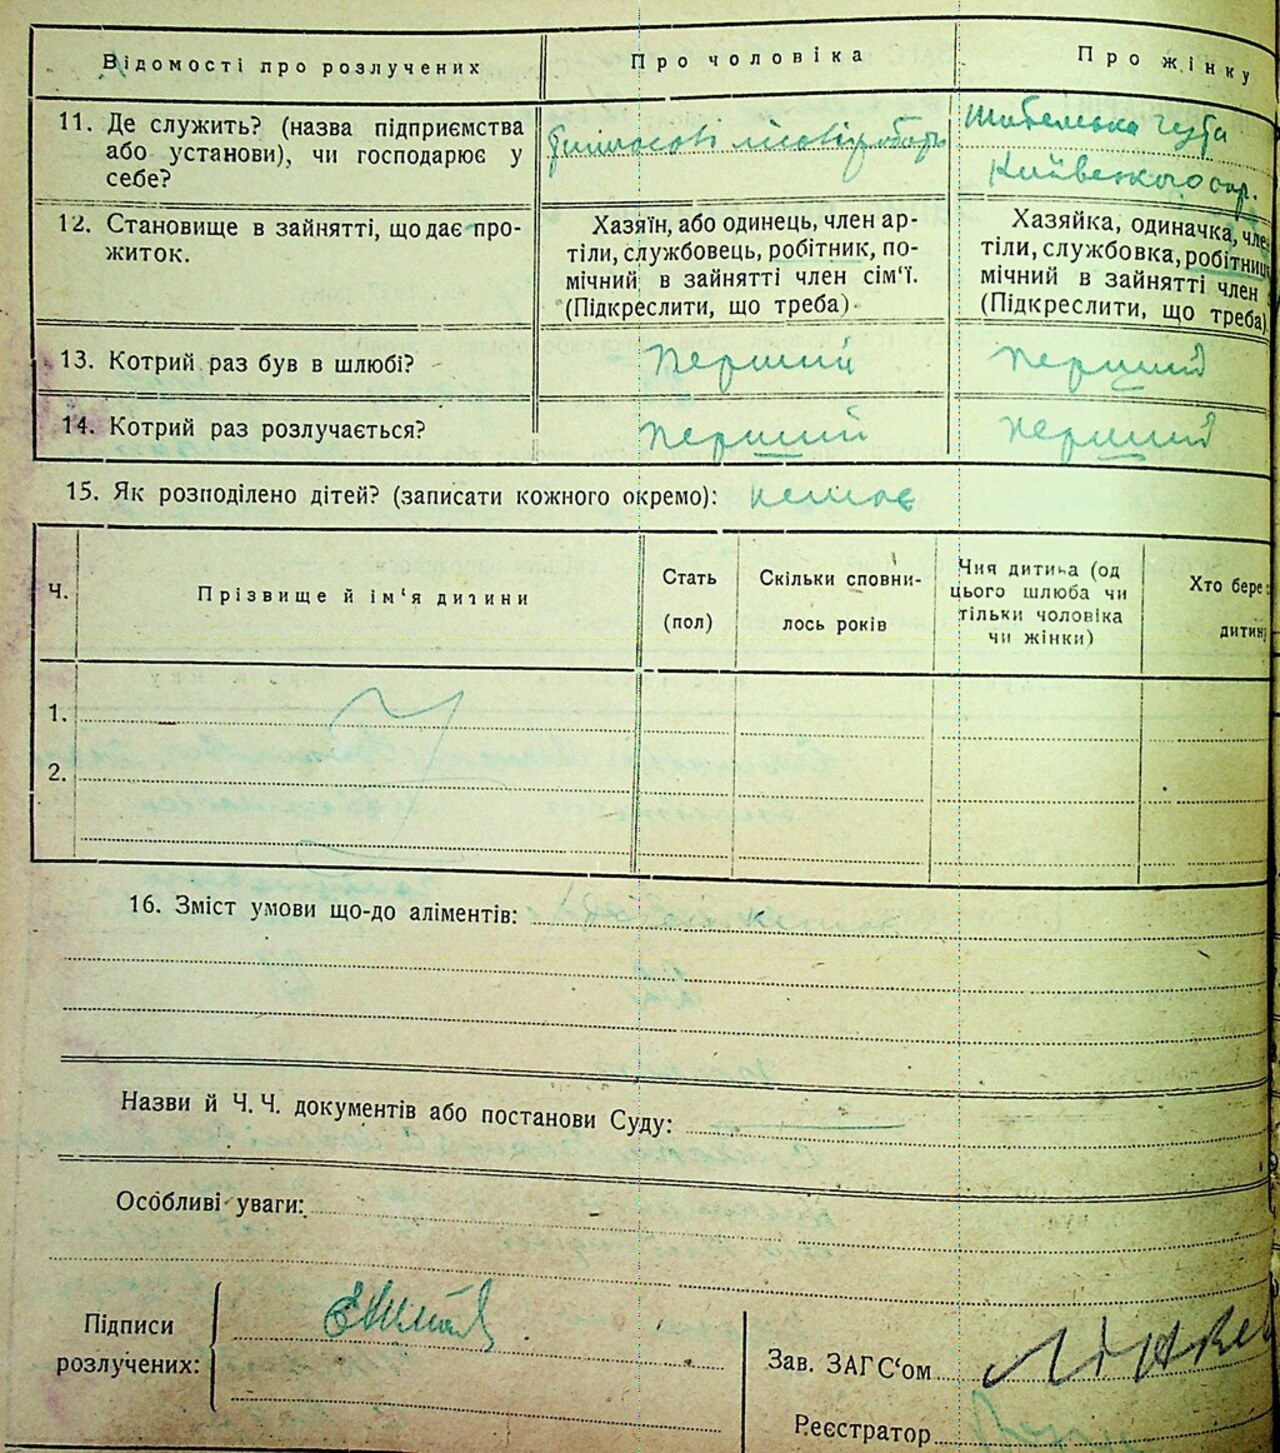 Відомості про розлучених
Про чоловіка
Про жінку
11. Де служить? (назва підприємства
або установи), чи господарює у
себе?
Київського
12. Становище в зайнятті, що дає про-
житок.
Хазяїн, або одинець, член ар-
тіли, службовець, робітник, по-
мічний в зайнятті член сім‘ї.
(Підкреслити, що треба)
Хазяйка, одиначка, чле
тіли, службовка, робітниц
мічний в зайнятті член
(Підкреслити, що треба)
13. Котрий раз був в шлюбі?
перший
перший
14. Котрий раз розлучається?
перший
перший
15. Як розподілено дітей? (записати кожного окремо): немає
Ч.
Прізвище й ім‘я дитини
Стать
(пол)
Скільки сповни-
лось років
Чия дитина (од
цього шлюба чи
тільки чоловіка
чи жінки)
Хто бере
дитин
1.
2.
16. Зміст умови що-до аліментів:
Назви й Ч. Ч. документів або постанови Суду:
Особливі уваги:
Підписи
розлучених:
Зав. ЗАГС‘ом
Реєстратор